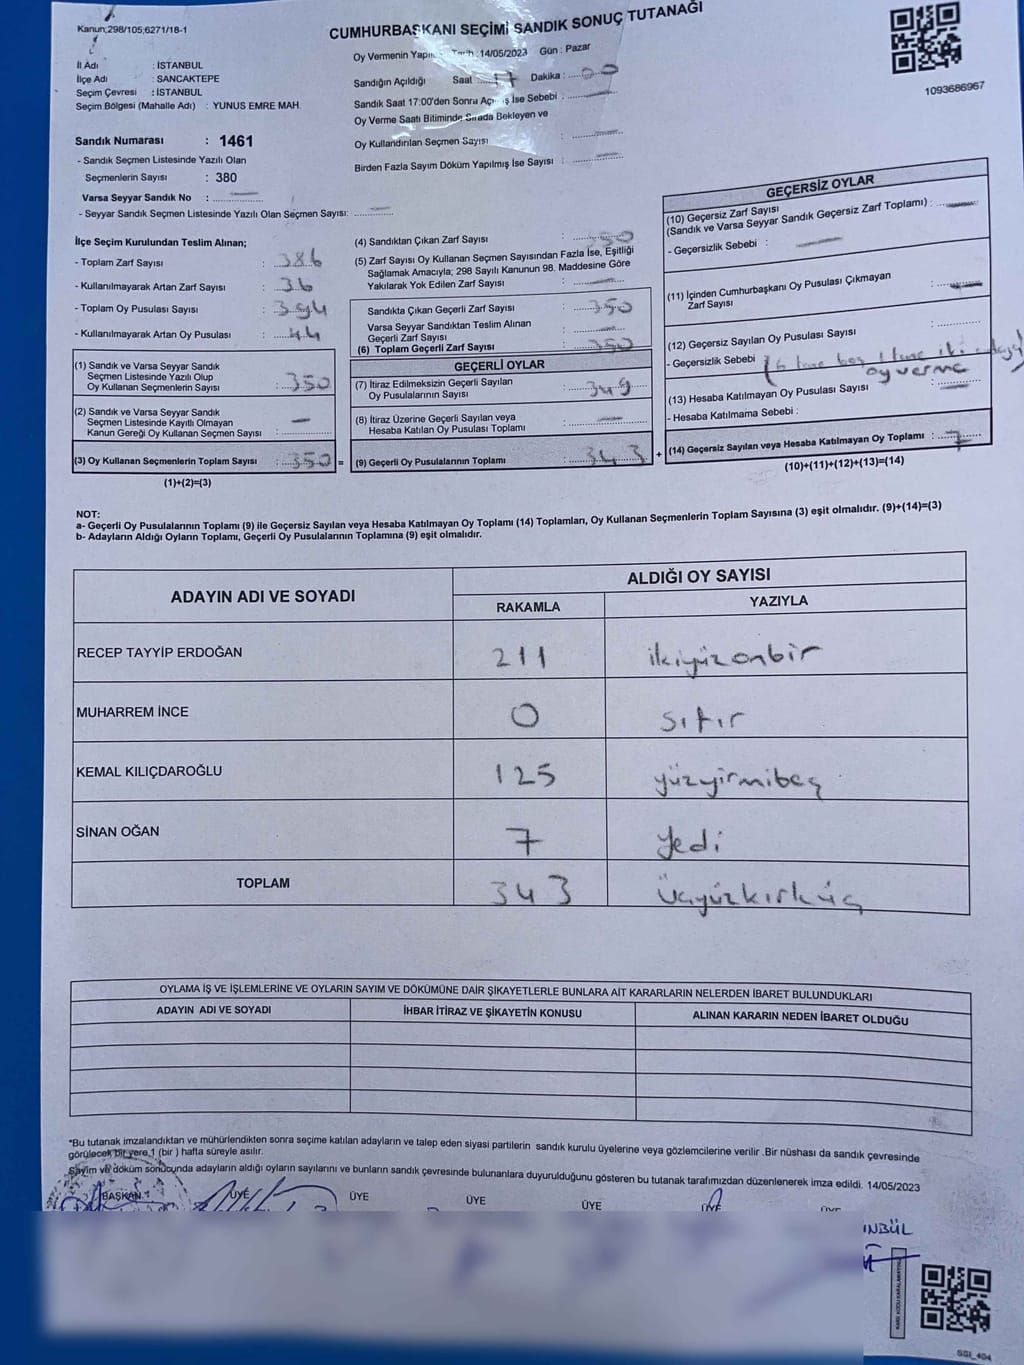 Kanun;298/105;6271/18-1
CUMHURBAŞKANI SEÇİMİ SANDIK SONUÇ TUTANAĞI
Oy Vermenin Tarih :14/05/2023 Gün : Pazar
İl Adı : İSTANBUL
İlçe Adı : SANCAKTEPE
Seçim Çevresi : İSTANBUL
Seçim Bölgesi (Mahalle Adı) : YUNUS EMRE MAH.
Sandığın Açıldığı Saat : 17 Dakika : 00
Sandık Saat 17:00'den Sonra İse Sebebi :
Oy Verme Saati Bitiminde Sırada Bekleyen ve
Oy Kullandırılan Seçmen Sayısı :
Birden Fazla Sayım Döküm Yapılmış İse Sayısı :
1093686967
Sandık Numarası : 1461
- Sandık Seçmen Listesinde Yazılı Olan
Seçmenlerin Sayısı : 380
Varsa Seyyar Sandık No :
- Seyyar Sandık Seçmen Listesinde Yazılı Olan Seçmen Sayısı:
İlçe Seçim Kurulundan Teslim Alınan;
- Toplam Zarf Sayısı : 386
- Kullanılmayarak Artan Zarf Sayısı : 36
- Toplam Oy Pusulası Sayısı : 394
- Kullanılmayarak Artan Oy Pusulası : 44
(1) Sandık ve Varsa Seyyar Sandık
Seçmen Listesinde Yazılı Olup
Oy Kullanan Seçmenlerin Sayısı : 350
(2) Sandık ve Varsa Seyyar Sandık
Seçmen Listesinde Kayıtlı Olmayan
Kanun Gereği Oy Kullanan Seçmen Sayısı : —
(3) Oy Kullanan Seçmenlerin Toplam Sayısı : 350 =
(1)+(2)=(3)
(4) Sandıktan Çıkan Zarf Sayısı : 350
(5) Zarf Sayısı Oy Kullanan Seçmen Sayısından Fazla İse, Eşitliği
Sağlamak Amacıyla; 298 Sayılı Kanunun 98. Maddesine Göre
Yakılarak Yok Edilen Zarf Sayısı :
Sandıkta Çıkan Geçerli Zarf Sayısı : 350
Varsa Seyyar Sandıktan Teslim Alınan
Geçerli Zarf Sayısı :
(6) Toplam Geçerli Zarf Sayısı : 350
GEÇERLİ OYLAR
(7) İtiraz Edilmeksizin Geçerli Sayılan
Oy Pusulalarının Sayısı : 349
(8) İtiraz Üzerine Geçerli Sayılan veya
Hesaba Katılan Oy Pusulası Toplamı :
(9) Geçerli Oy Pusulalarının Toplamı : 343 +
GEÇERSİZ OYLAR
(10) Geçersiz Zarf Sayısı
(Sandık ve Varsa Seyyar Sandık Geçersiz Zarf Toplamı) :
- Geçersizlik Sebebi :
(11) İçinden Cumhurbaşkanı Oy Pusulası Çıkmayan
Zarf Sayısı :
(12) Geçersiz Sayılan Oy Pusulası Sayısı :
- Geçersizlik Sebebi 6 tane boş 1 tane iki
oy verme
(13) Hesaba Katılmayan Oy Pusulası Sayısı :
- Hesaba Katılmama Sebebi :
(14) Geçersiz Sayılan veya Hesaba Katılmayan Oy Toplamı : 7
(10)+(11)+(12)+(13)=(14)
NOT:
a- Geçerli Oy Pusulalarının Toplamı (9) ile Geçersiz Sayılan veya Hesaba Katılmayan Oy Toplamı (14) Toplamları, Oy Kullanan Seçmenlerin Toplam Sayısına (3) eşit olmalıdır. (9)+(14)=(3)
b- Adayların Aldığı Oyların Toplamı, Geçerli Oy Pusulalarının Toplamına (9) eşit olmalıdır.
ADAYIN ADI VE SOYADI
ALDIĞI OY SAYISI
RAKAMLA YAZIYLA
RECEP TAYYİP ERDOĞAN 211 ikiyüzonbir
MUHARREM İNCE 0 sıfır
KEMAL KILIÇDAROĞLU 125 yüzyirmibeş
SİNAN OĞAN 7 Yedi
TOPLAM 343 Üçyüzkırküç
OYLAMA İŞ VE İŞLEMLERİNE VE OYLARIN SAYIM VE DÖKÜMÜNE DAİR ŞİKAYETLERLE BUNLARA AİT KARARLARIN NELERDEN İBARET BULUNDUKLARI
ADAYIN ADI VE SOYADI İHBAR İTİRAZ VE ŞİKAYETİN KONUSU ALINAN KARARIN NEDEN İBARET OLDUĞU
*Bu tutanak imzalandıktan ve mühürlendikten sonra seçime katılan adayların ve talep eden siyasi partilerin sandık kurulu üyelerine veya gözlemcilerine verilir .Bir nüshası da sandık çevresinde
görülecek bir yere 1 (bir ) hafta süreyle asılır.
Sayım ve döküm sonucunda adayların aldığı oyların sayılarını ve bunların sandık çevresinde bulunanlara duyurulduğunu gösteren bu tutanak tarafımızdan düzenlenerek imza edildi. 14/05/2023
BAŞKAN ÜYE ÜYE ÜYE ÜYE ÜYE ÜYE
SSI_404